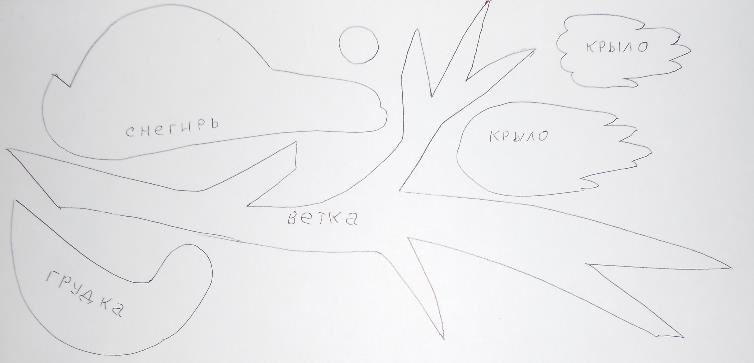 крыло
снегирь
крыло
ветка
грудка